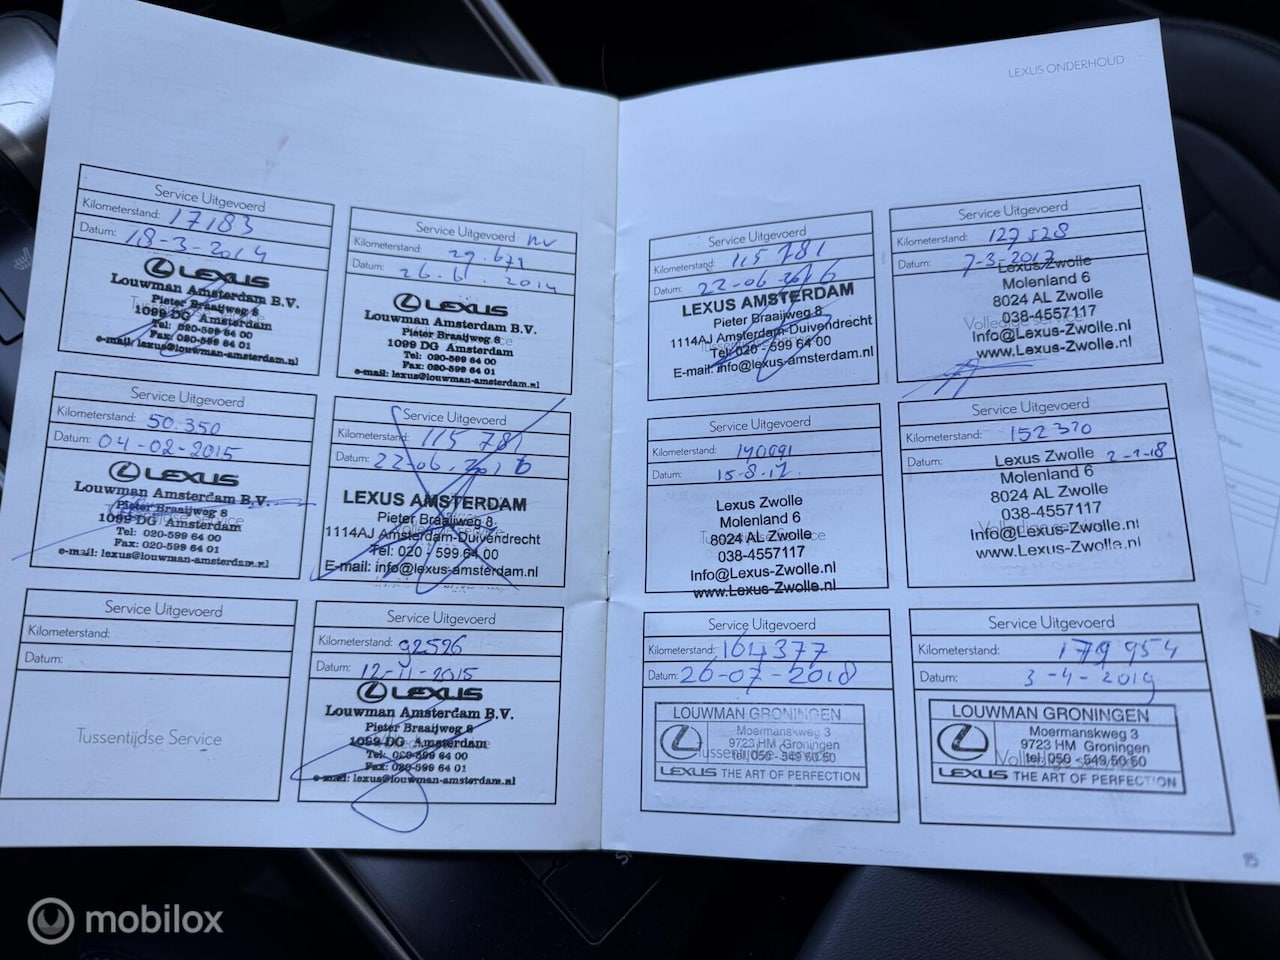 LEXUS ONDERHOUD
Service Uitgevoerd
Kilometerstand: 17183
Datum: 18-3-2014
LEXUS
Louwman Amsterdam B.V.
Pieter Braaijweg 8
1099 DG Amsterdam
Tel: 020-599 64 00
Fax: 020-599 64 01
e-mail: lexus@louwman-amsterdam.nl
Service Uitgevoerd nv
Kilometerstand: 29.671
Datum: 26.6.2014
LEXUS
Louwman Amsterdam B.V.
Pieter Braaijweg 8
1099 DG Amsterdam
Tel: 020-599 64 00
Fax: 020-599 64 01
e-mail: lexus@louwman-amsterdam.nl
Service Uitgevoerd
Kilometerstand: 50.350
Datum: 04-02-2015
LEXUS
Louwman Amsterdam B.V.
Pieter Braaijweg 8
1099 DG Amsterdam
Tel: 020-599 64 00
Fax: 020-599 64 01
e-mail: lexus@louwman-amsterdam.nl
Service Uitgevoerd
Kilometerstand: 115 781
Datum: 22-06-2016
LEXUS AMSTERDAM
Pieter Braaijweg 8
1114AJ Amsterdam-Duivendrecht
Tel: 020 - 599 64 00
E-mail: info@lexus-amsterdam.nl
Service Uitgevoerd
Kilometerstand:
Datum:
Tussentijdse Service
Service Uitgevoerd
Kilometerstand: 92526
Datum: 12-11-2015
LEXUS
Louwman Amsterdam B.V.
Pieter Braaijweg 8
1099 DG Amsterdam
Tel: 020-599 64 00
Fax: 020-599 64 01
e-mail: lexus@louwman-amsterdam.nl
Service Uitgevoerd
Kilometerstand: 115 781
Datum: 22-06-2016
LEXUS AMSTERDAM
Pieter Braaijweg 8
1114AJ Amsterdam-Duivendrecht
Tel 020 - 599 64 00
E-mail: info@lexus-amsterdam.nl
Service Uitgevoerd
Kilometerstand: 127 528
Datum: 7-3-2017
Lexus Zwolle
Molenland 6
8024 AL Zwolle
038-4557117
Volledige service
Info@Lexus-Zwolle.nl
www.Lexus-Zwolle.nl
Service Uitgevoerd
Kilometerstand: 140091
Datum: 15-8-17
Lexus Zwolle
Molenland 6
8024 AL Zwolle
038-4557117
Info@Lexus-Zwolle.nl
www.Lexus-Zwolle.nl
Service Uitgevoerd
Kilometerstand: 152320
Datum: 2-2-18
Lexus Zwolle
Molenland 6
8024 AL Zwolle
038-4557117
Info@Lexus-Zwolle.nl
www.Lexus-Zwolle.nl
Service Uitgevoerd
Kilometerstand: 164377
Datum: 26-07-2018
LOUWMAN GRONINGEN
Moermanskweg 3
9723 HM Groningen
Tussentijdse Service
tel. 050 - 549 50 50
LEXUS THE ART OF PERFECTION
Service Uitgevoerd
Kilometerstand: 179954
Datum: 3-4-2019
LOUWMAN GRONINGEN
Moermanskweg 3
9723 HM Groningen
tel. 050 - 549 50 50
LEXUS THE ART OF PERFECTION
15
mobilox